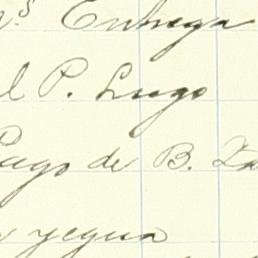 Entrega
P. Lugo
Pago de B.
yegua